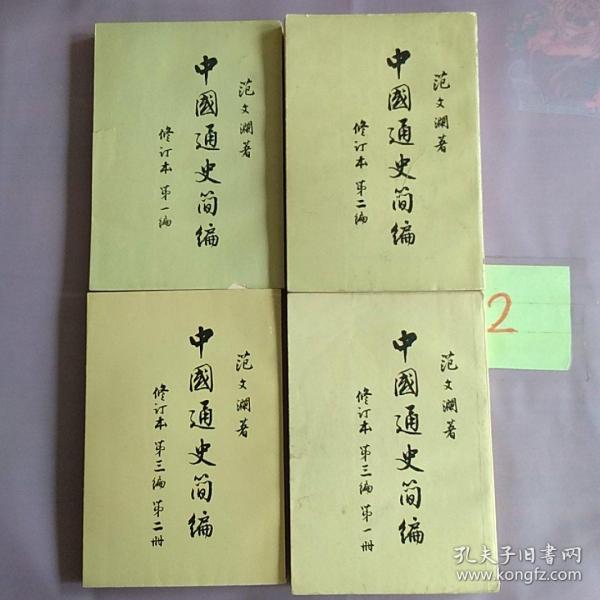 范文瀾著
中國通史简编
修订本 第一编
范文瀾著
中國通史简编
修订本 第二编
范文瀾著
中國通史简编
修订本 第三编 第二册
范文瀾著
中國通史简编
修订本 第三编 第一册
2
孔夫子旧书网
www.kongfz.com